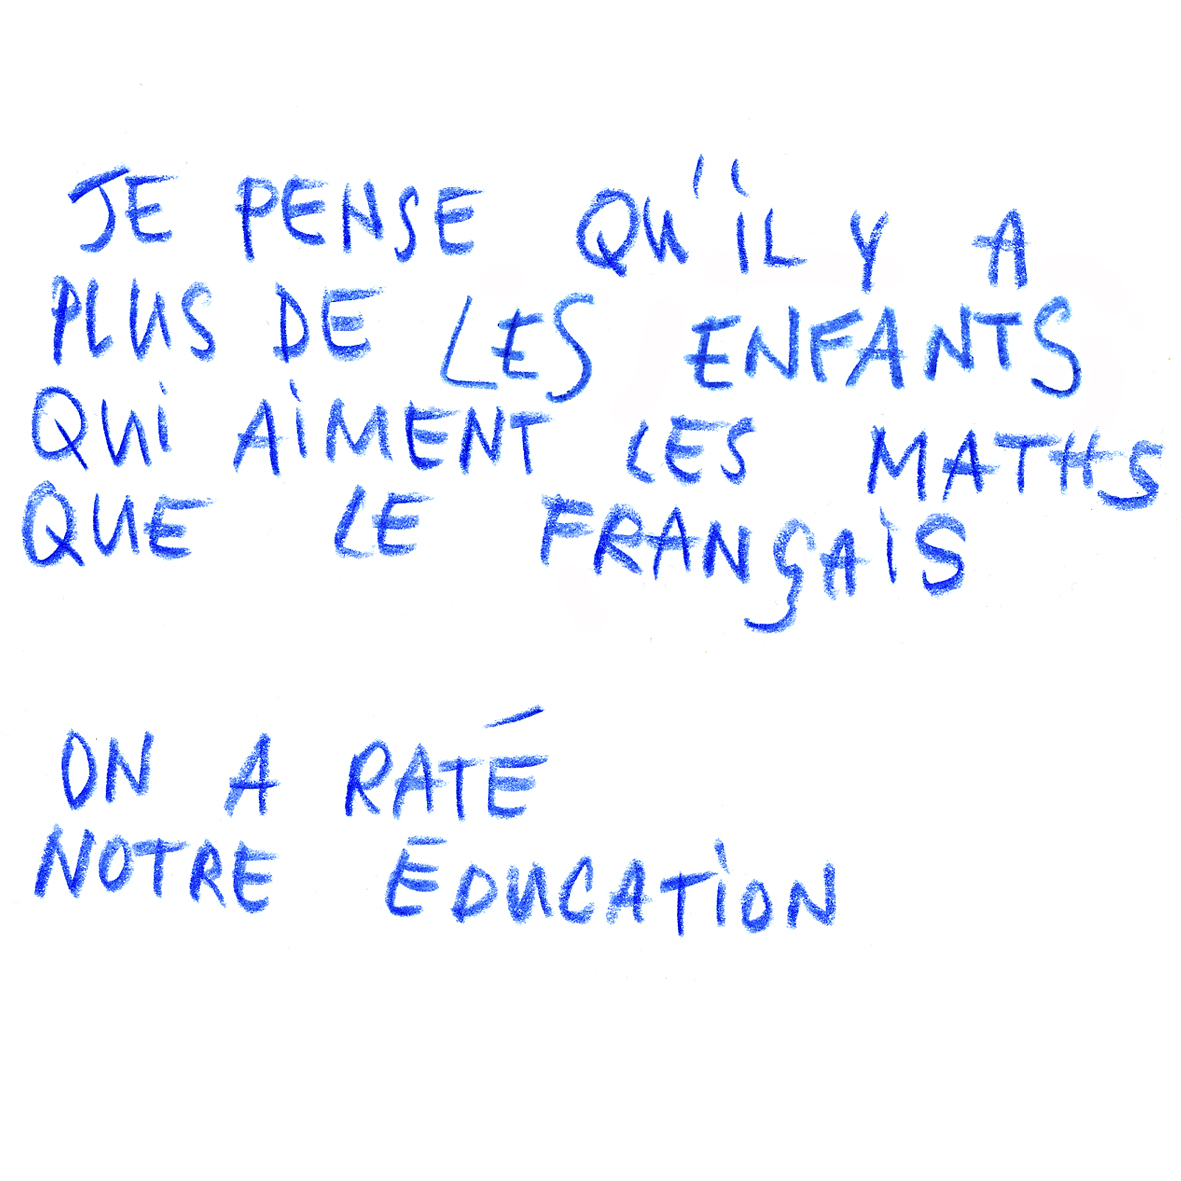 JE PENSE QU'IL Y A
PLUS DE LES ENFANTS
QUI AIMENT LES MATHS
QUE LE FRANÇAIS
ON A RATÉ
NOTRE EDUCATION